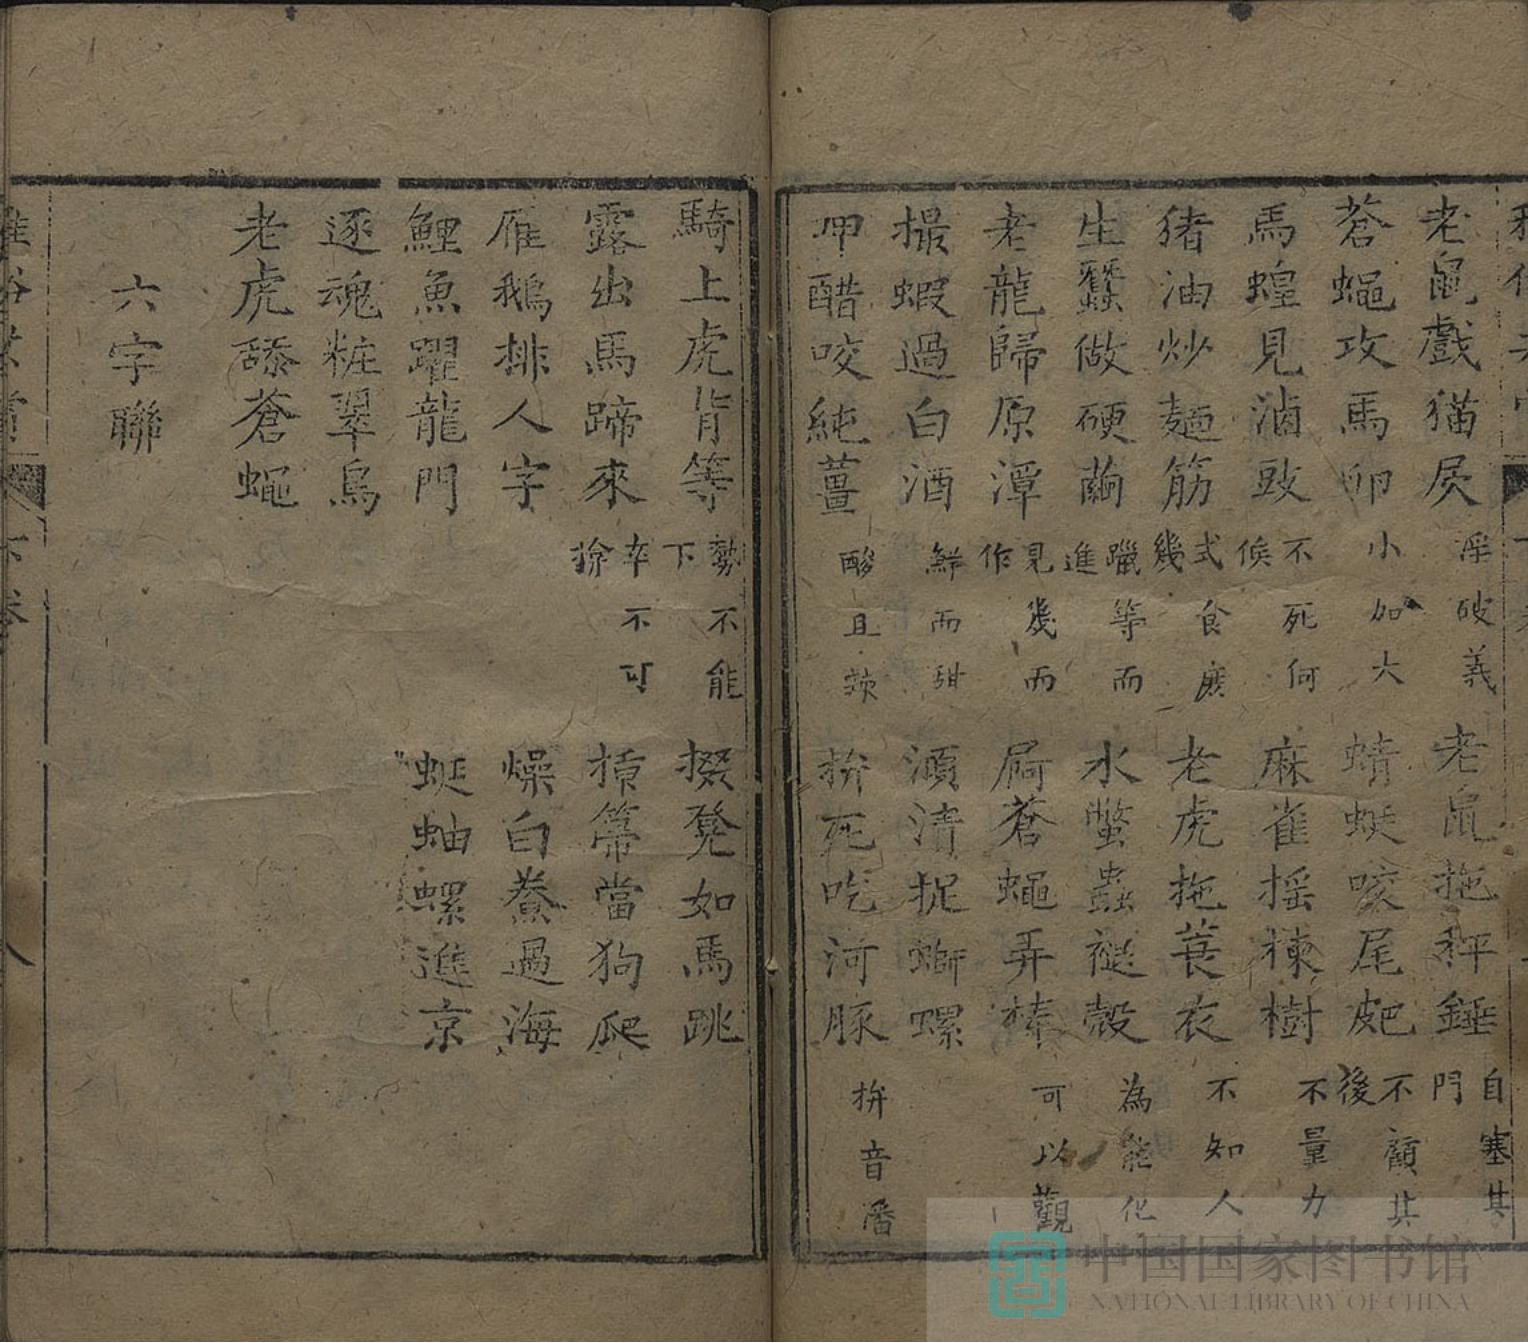 老鼠戲猫𡱖 淫破義 老鼠拖秤錘 自塞其門
蒼蠅攻馬卵 小加大 蜻蜓咬尾皅 不顧其後
馬蝗見滷豉 不死何候 麻雀摇楝樹 不量力
猪油炒麺筋 式食庶幾 老虎拖蓑衣 不知人
生蠶做硬繭 躐等而進 水蟞蟲褪殼 為能化
老龍歸原潭 見幾而作 屙蒼蠅弄棒 可以觀
撮蝦過白酒 鮮而甜 澒清捉螄螺
呷醋咬純薑 酸且辣 拚死吃河豚 拚音潘
騎上虎背等 勢不能下 掇凳如馬跳
露出馬蹄來 卒不可揜 㨪箒當狗爬
雁鵝排人字 燥白鮝過海
鯉魚躍龍門 蜒蚰螺進京
逐魂粧翠鳥
老虎舔蒼蠅
六字聯
下卷
八
中国国家图书馆
NATIONAL LIBRARY OF CHINA